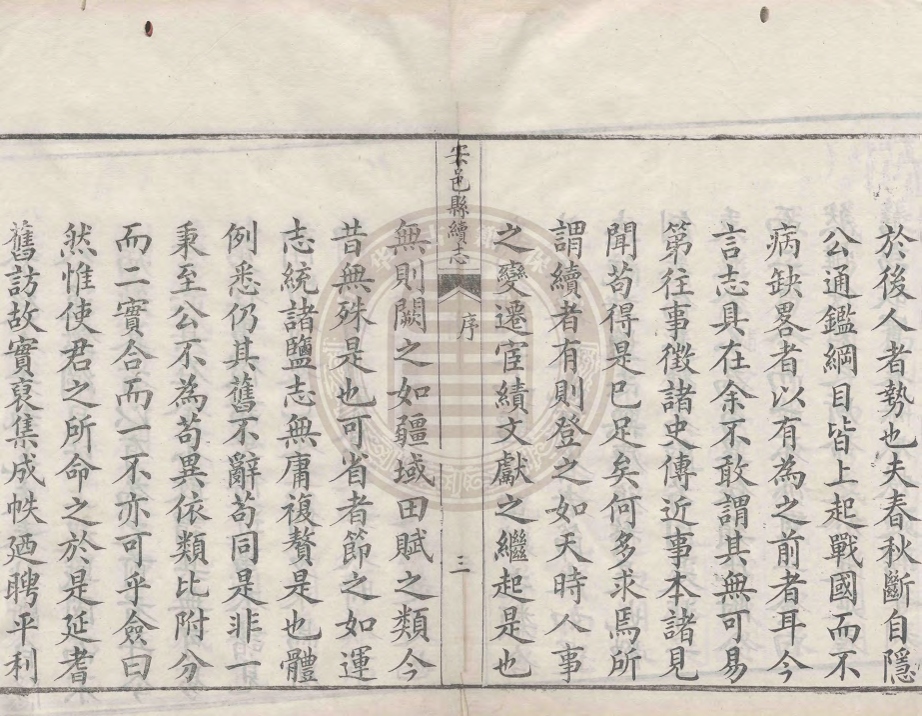 於後人者勢也夫春秋斷自隱
公通鑑綱目皆上起戰國而不
病缺畧者以有為之前者耳今
言志具在余不敢謂其無可易
第往事徵諸史傳近事本諸見
聞苟得是已足矣何多求焉所
謂續者有則登之如天時人事
之變遷宦績文獻之繼起是也
安邑縣續志
序
三
無則闕之如疆域田賦之類今
昔無殊是也可省者節之如運
志統諸鹽志無庸複贅是也體
例悉仍其舊不辭苟同是非一
秉至公不為苟異依類比附分
而二實合而一不亦可乎僉曰
然惟使君之所命之於是延耆
舊訪故實裒集成帙廼聘平利